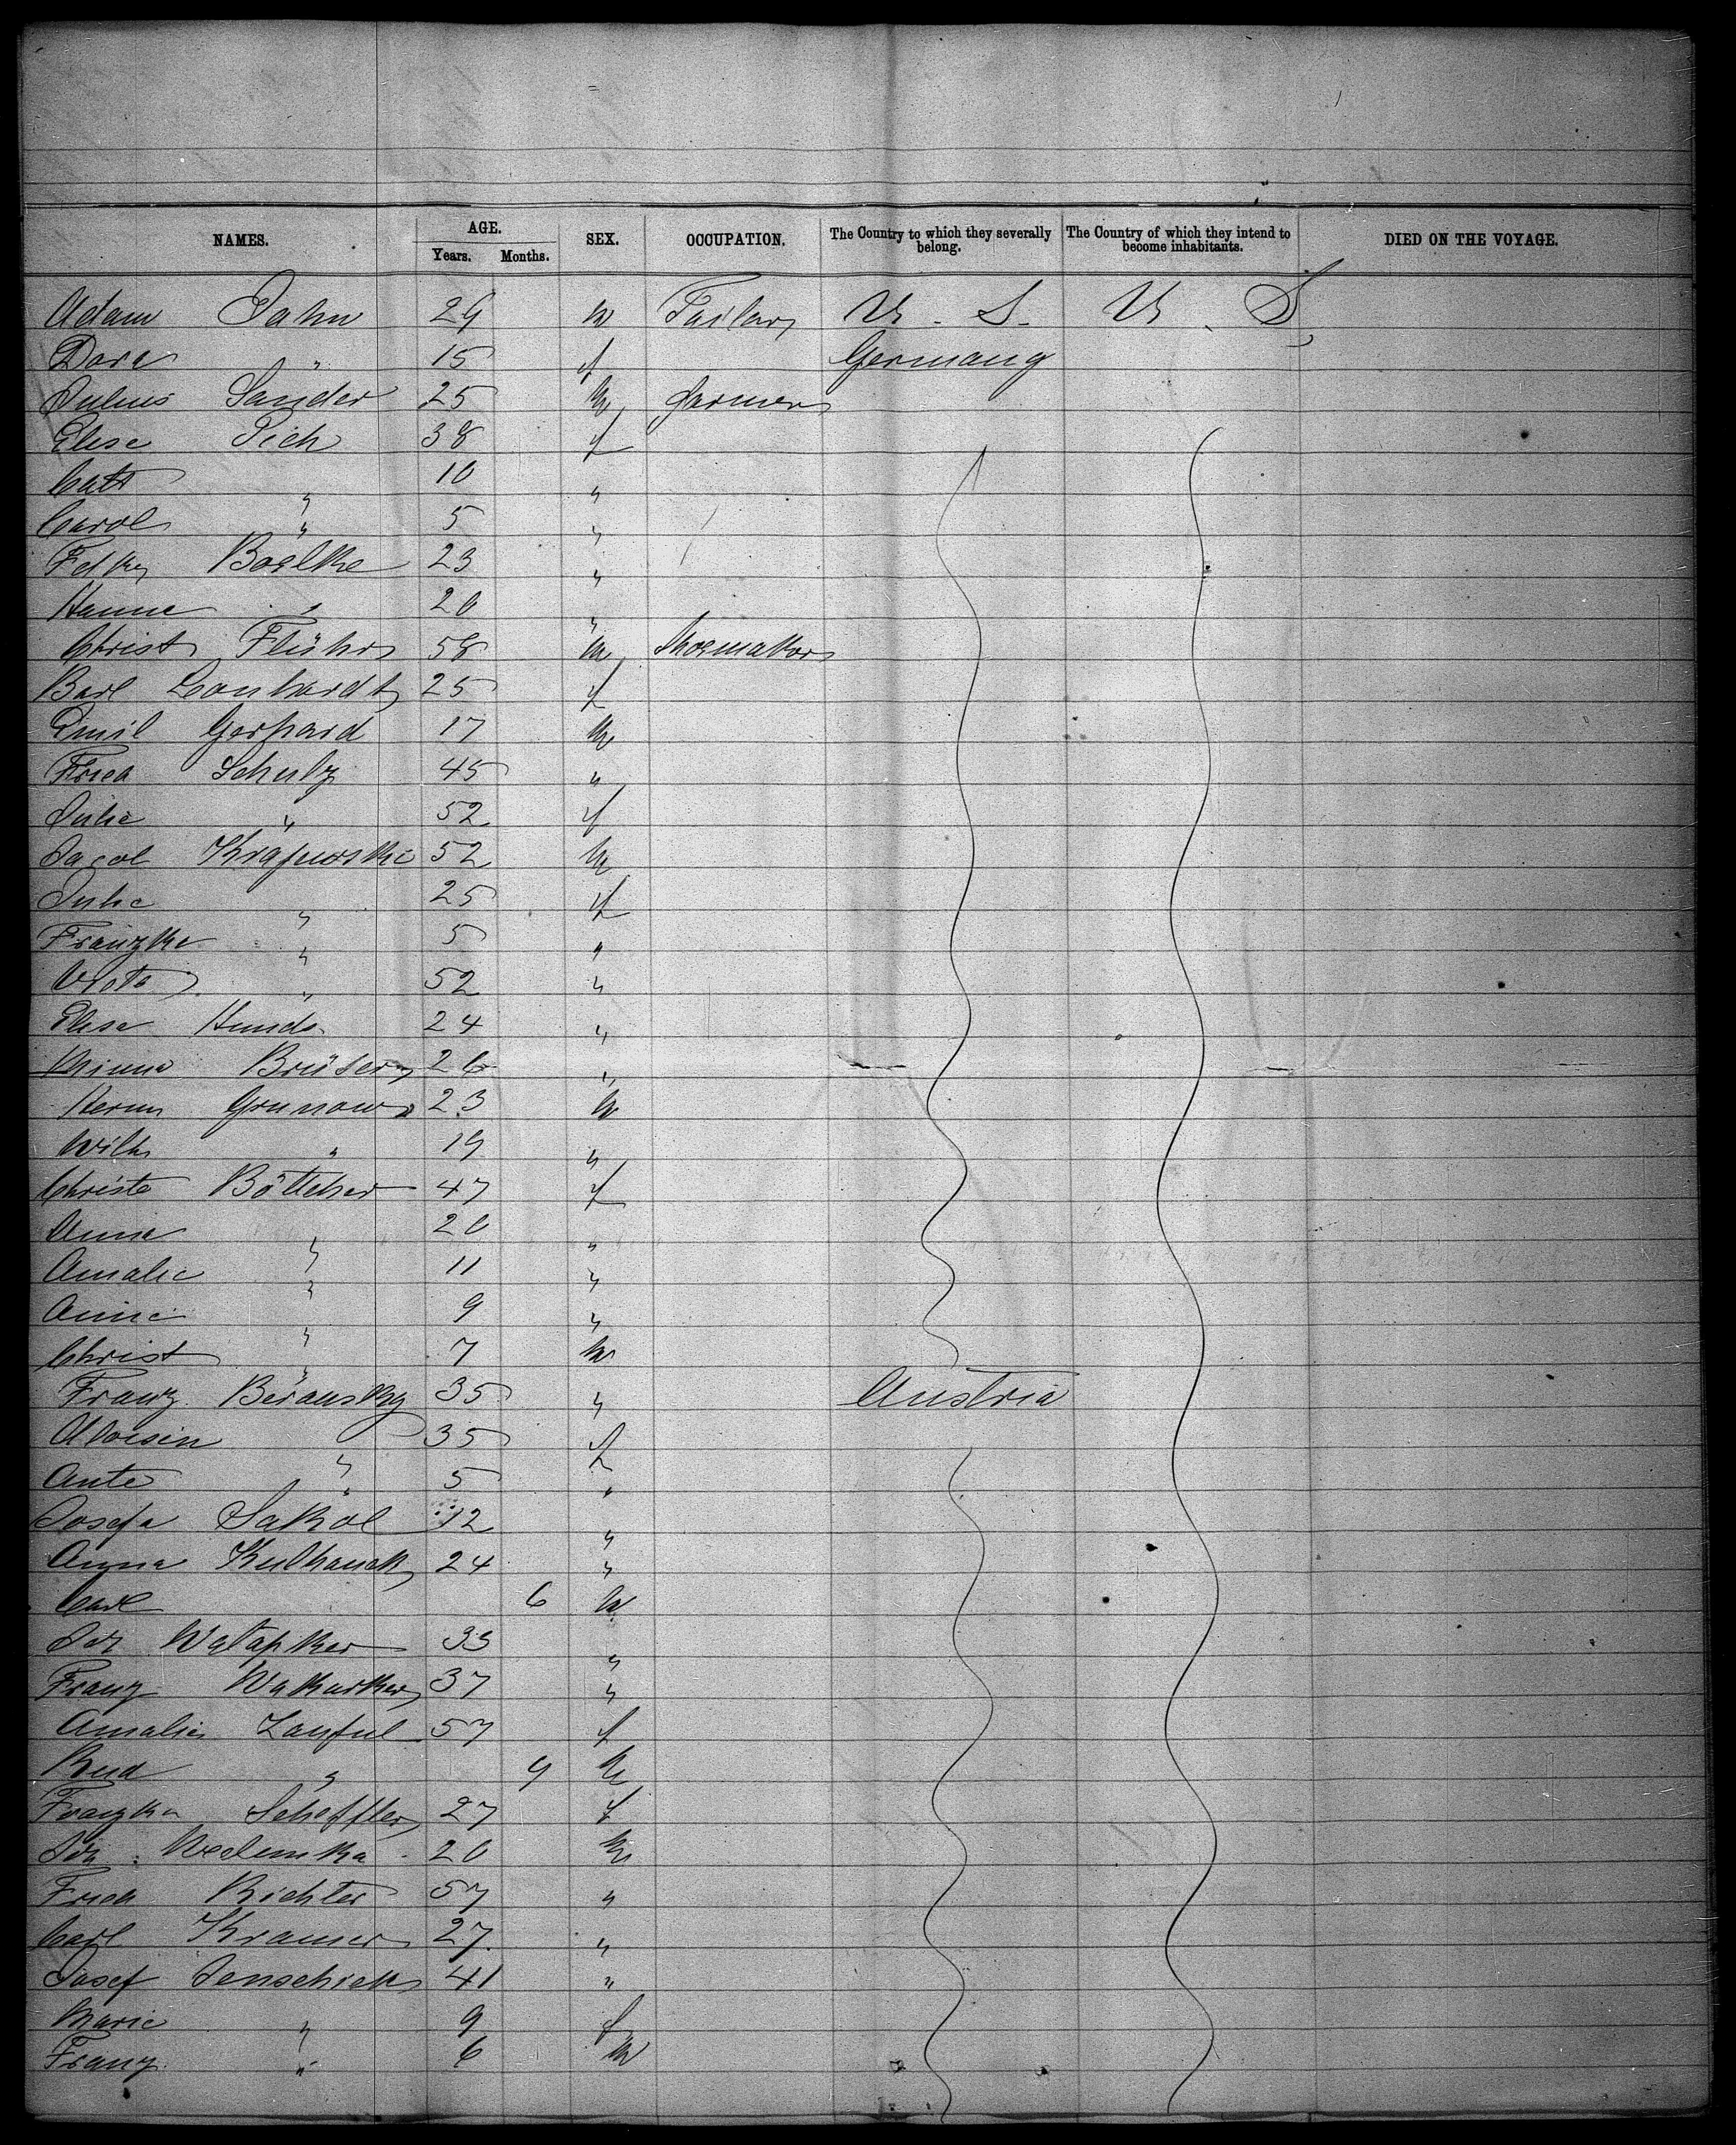 NAMES. AGE. SEX. OCCUPATION. The Country to which they severally belong. The Country of which they intend to become inhabitants. DIED ON THE VOYAGE.
Years. Months.
Adam Jahn 29 m Tailor U. S. U. S.
Dora " 15 f Germany
Julius Sander 25 m farmer
Elise Pich 38 f
Cath " 10 "
Carol " 5 "
Boelke 23 "
Hanne " 20 "
Christ Flühr 58 m Shoemaker
Leonhardt 25 f
Emil Gerhard 17 m
Fried Schulz 45 "
Julie " 52 f
Jacob Krajewski 52 m
Julie " 25 f
Franzka " 5 "
" 52 "
Elise Hunds 24 "
Minna Brüser 26 "
Herm Grunow 23 m
Wilh " 19 "
Christe Böttcher 47 f
Anna " 20 "
Amalie " 11 "
" 9 "
Christ " 7 m
Franz Beransky 35 " Austria
Aloisia " 35 f
Ante " 5 "
Josefa Sakol 12 "
Anna Kulhanek 24 "
Carl 6 m
33 "
Franz 37 "
Amalia 57 f
Rud " 9 m
Franzka Scheffler 27 f
20 m
Fried Richter 57 "
Carl Kramer 27. "
Josef Jenschick 41 "
Marie " 9 f
Franz " 6 m